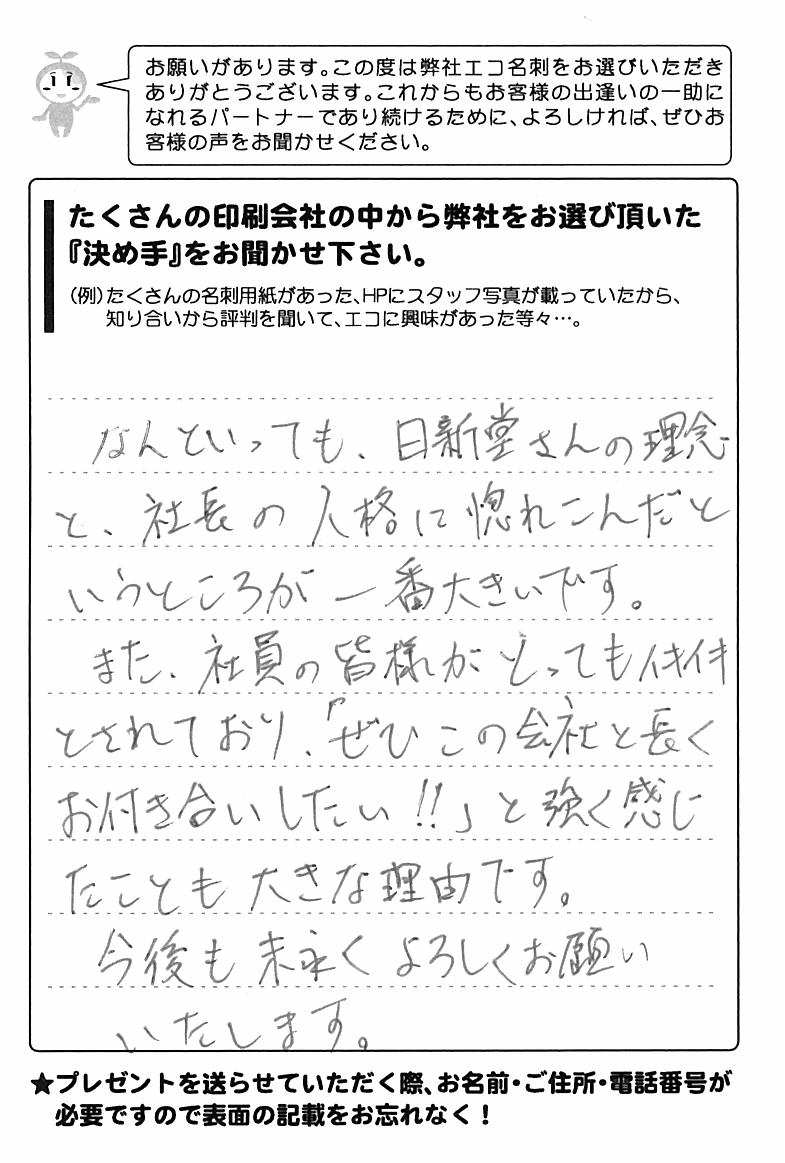 お願いがあります。この度は弊社エコ名刺をお選びいただき
ありがとうございます。これからもお客様の出逢いの一助に
なれるパートナーであり続けるために、よろしければ、ぜひお
客様の声をお聞かせください。
たくさんの印刷会社の中から弊社をお選び頂いた
『決め手』をお聞かせ下さい。
(例)たくさんの名刺用紙があった、HPにスタッフ写真が載っていたから、
知り合いから評判を聞いて、エコに興味があった等々…。
なんといっても、日新堂さんの理念
と、社長の人格に惚れこんだと
いうところが一番大きいです。
また、社員の皆様がとってもイキイキ
とされており、「ぜひこの会社と長く
お付き合いしたい!!」と強く感じ
たことも大きな理由です。
今後も末永くよろしくお願い
いたします。
★プレゼントを送らせていただく際、お名前・ご住所・電話番号が
必要ですので表面の記載をお忘れなく!